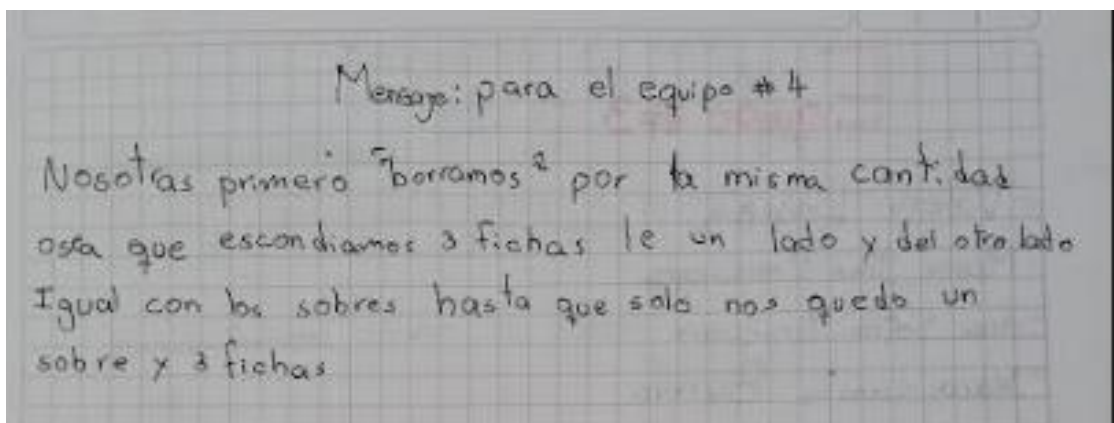 Mensaje: para el equipo # 4
Nosotras primero "borramos" por la misma cantidad
osea que escondiamos 3 fichas de un lado y del otro lado
Igual con los sobres hasta que solo nos quedo un
sobre y 3 fichas